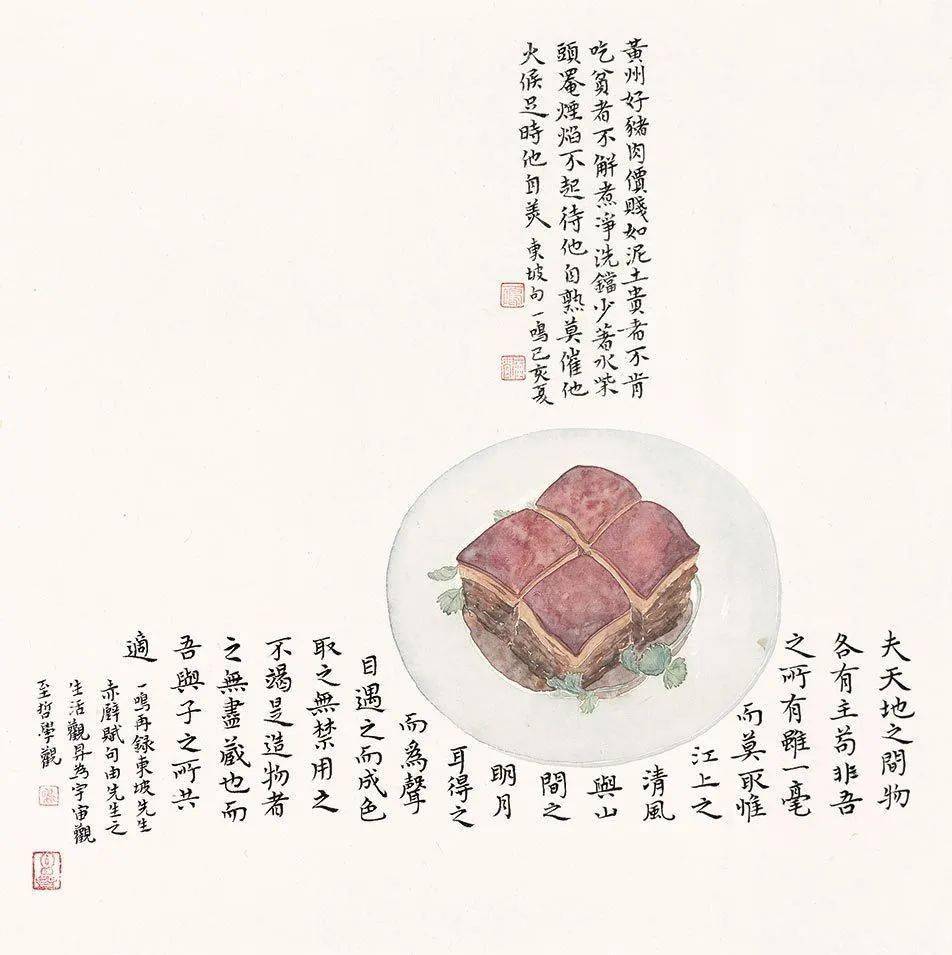 黃州好豬肉價賤如泥土貴者不肯
吃貧者不解煮淨洗鐺少著水柴
頭罨煙焰不起待他自熟莫催他
火候足時他自美 東坡句一鳴己亥夏
夫天地之間物
各有主苟非吾
之所有雖一毫
而莫取惟
江上之
清風
與山
間之
明月
耳得之
而爲聲
目遇之而成色
取之無禁用之
不竭是造物者
之無盡藏也而
吾與子之所共
適
一鳴再録東坡先生
赤壁賦句由先生之
生活觀昇為宇宙觀
至哲學觀